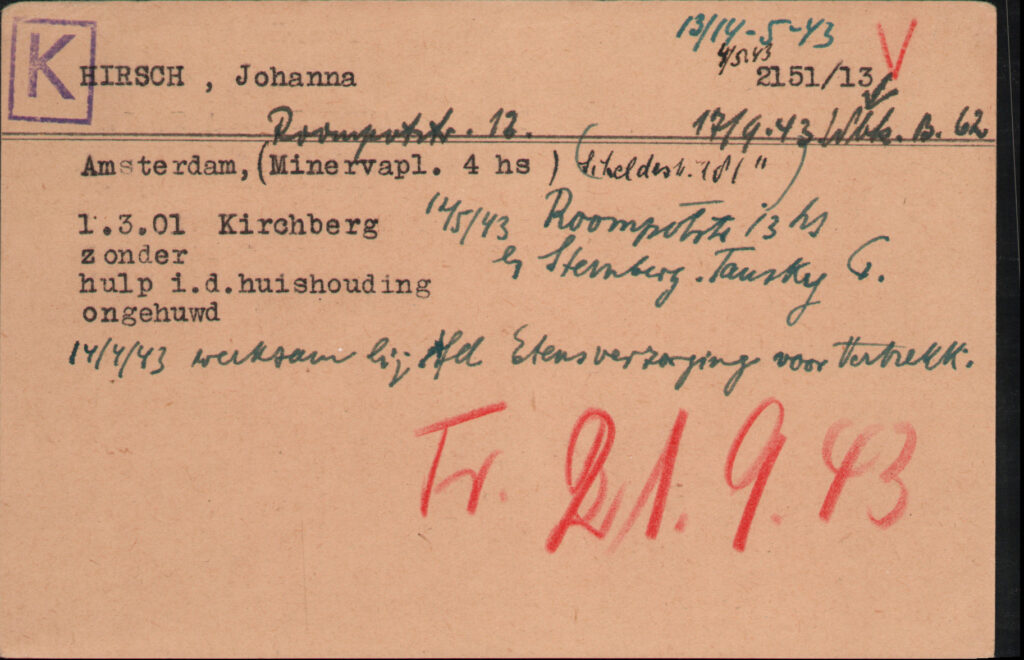 13/14-5-43 V
K HIRSCH , Johanna 2151/13
Roompotstr. 12. 17/9.43 Wbk. B. 62
Amsterdam, (Minervapl. 4 hs ) (Scheldestr. 181 ")
1.3.01 Kirchberg 14/5/43 Roompotstr 13 hs
zonder Sternberg. Tausky
hulp i.d.huishouding
ongehuwd
14/4/43 werksam bij Afd Etensverzorging voor Vertrekk.
Tr. 21.9.43